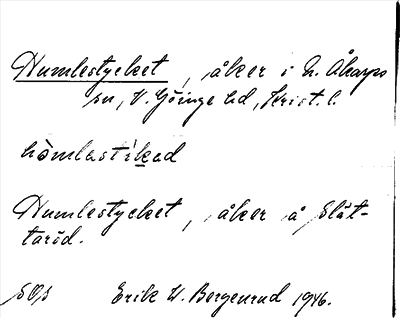 Humlestycket, åker i N. Åkarps
sn, V. Göinge hd, Krist. l.
hòmlastikad
Humlestycket, åker å Slät-
taröd.
Erik W. Bergenrud 1946.